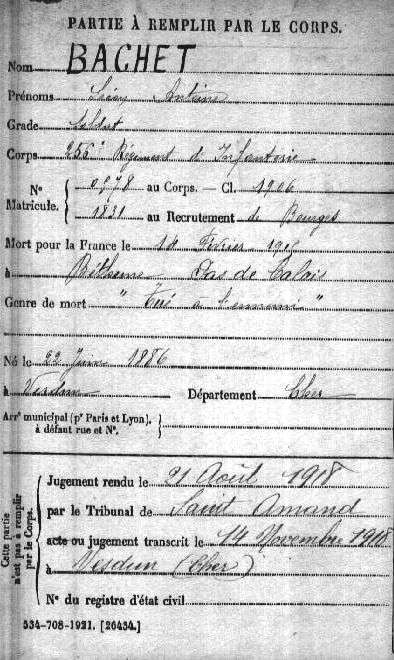 PARTIE À REMPLIR PAR LE CORPS.
Nom BACHET
Prénoms Antoine
Grade Soldat
Corps 256e Régiment d'Infanterie
N° Matricule. { 0978 au Corps. — Cl. 1906
1831 au Recrutement de Bourges
Mort pour la France le 14 Février
à Béthune Pas de Calais
Genre de mort " Tué à l'ennemi "
Né le 22 Juin 1886
à Vesdun Département Cher
Arrt municipal (pr Paris et Lyon), à défaut rue et N°. }
Cette partie n'est pas à remplir par le Corps.
Jugement rendu le 21 Août 1918
par le Tribunal de Saint Amand
acte ou jugement transcrit le 14 Novembre 1918
à Vesdun (Cher)
N° du registre d'état civil
534-708-1921. [26434.]